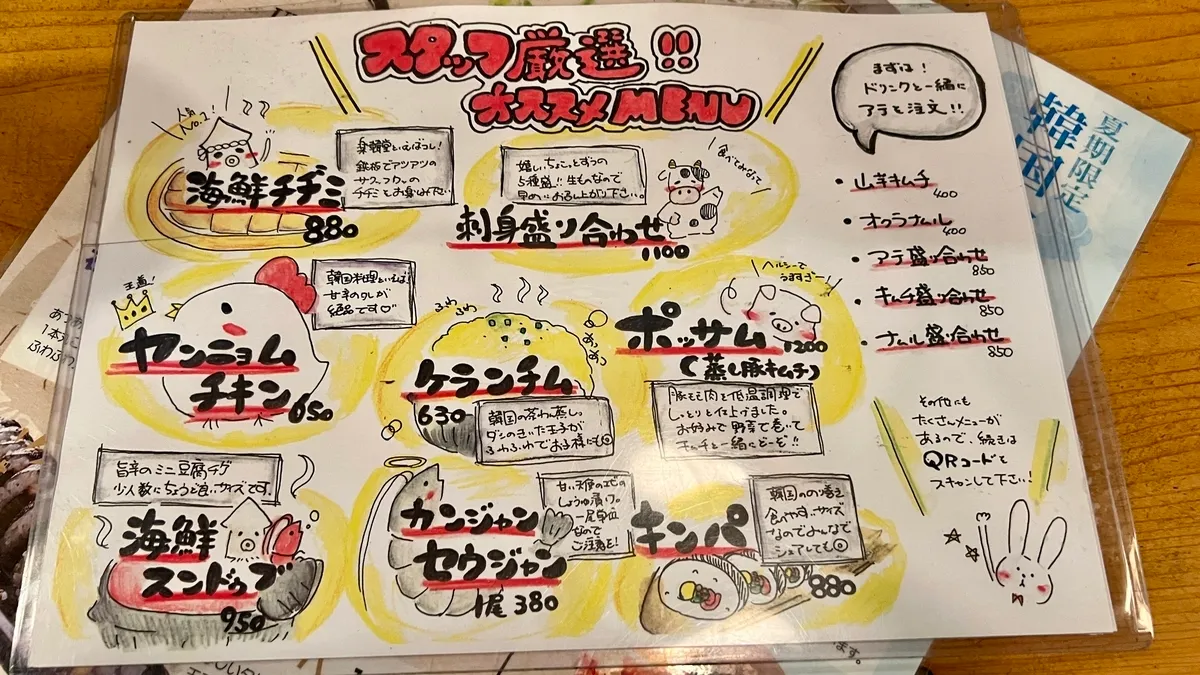 スタッフ厳選!!
オススメMENU
まずは!
ドリンクと一緒に
アテを注文!!
人気
No.1
海鮮チヂミ
880
といえばコレ!
鉄板でアツアツの
サクフワの
チヂミをお召み下さい
嬉しいちょこっとずつの
5種盛!!生ものなので
早めにお召し上がり下さい。
食べてみなって
刺身盛り合わせ
1100
・山芋キムチ
400
・オクラナムル
400
・アテ盛り合わせ
850
・キムチ盛り合わせ
850
・ナムル盛り合わせ
850
王道!
韓国料理といえば!
甘辛のタレが
絶品です♡
ヤンニョム
チキン 650
ふわふわ
ケランチム
630
韓国の茶わん蒸し。
ダシのきいた玉子が
ふわふわでお子様にも◎
ヘルシーで
うますぎー
ポッサム 1200
(蒸し豚キムチ)
豚もも肉を低温調理で
しっとりと仕上げました。
お好みで野菜で巻いて
キムチと一緒にどーぞ!!
旨辛のミニ豆腐チゲ
少人数にちょうど良いサイズです。
海鮮
スンドゥブ
950
カンジャン
セウジャン
1尾 380
甘い天使のエビの
しょうゆ漬け。
一尾単位
なので
ご注意を!
キンパ
880
韓国ののり巻き
食べやすいサイズ
なのでみんなで
シェアしても◎
その他にも
たくさんメニューが
あるので、続きは
QRコードを
スキャンして下さい!
夏期限定
韓国